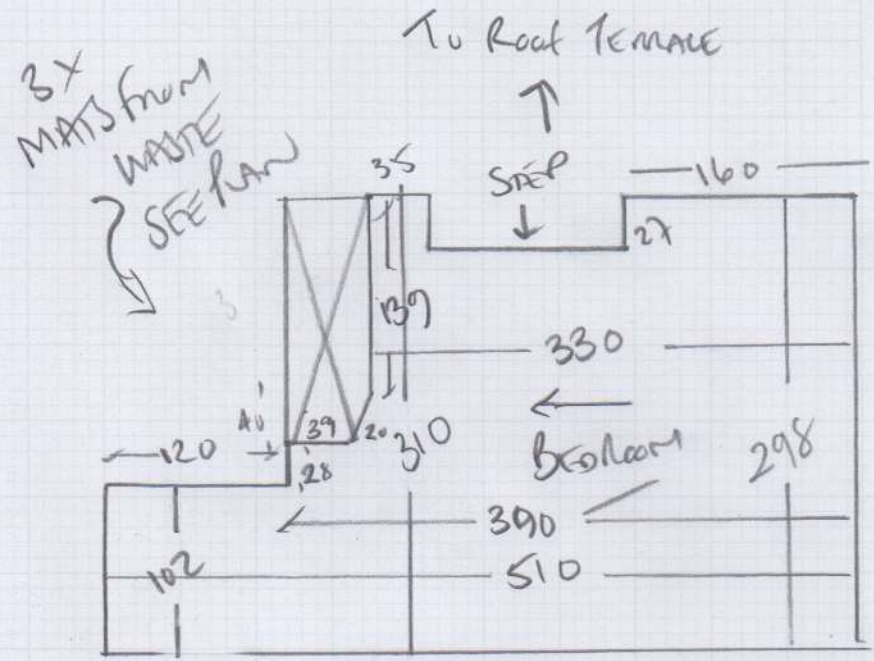 To Roof TERRACE
3X
MATS FROM
WASTE
SEE PLAN
35
STEP
160
27
139
330
39
20
310
BEDROOM
298
120
28
390
510
102